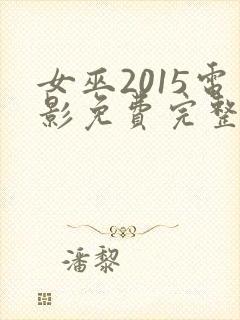 女巫2015电
影免费完整
潘黎